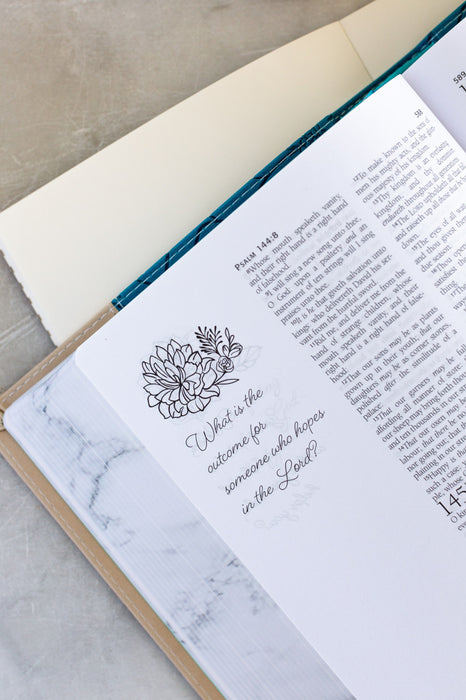 PSALM 144:8
⁸Whose mouth speaketh vanity,
and their right hand is a right hand
of falsehood.
⁹I will sing a new song unto thee,
O God: upon a psaltery and an
instrument of ten strings will I sing
praises unto thee.
¹⁰It is he that giveth salvation unto
kings: who delivereth David his ser-
vant from the hurtful sword.
¹¹Rid me, and deliver me from the
hand of strange children, whose
mouth speaketh vanity, and their
right hand is a right hand of false-
hood:
¹²That our sons may be as plants
grown up in their youth; that our
daughters may be as corner stones,
polished after the similitude of a
palace:
¹³That our garners may be full,
affording all manner of store: that
our sheep may bring forth
and ten thousands in our
¹⁴That our oxen may be
labour; that there be no
not going out; that there
plaining in our
¹⁵Happy is that
such a case: yea,
ple, whose
145
O
58
To make known to the sons of
men his mighty acts, and the glori-
ous majesty of his kingdom.
¹³Thy kingdom is an everlasting
kingdom, and thy dominion
endureth throughout all generations.
¹⁴The LORD upholdeth all
and raiseth up all those that
down.
¹⁵The eyes of all
and thou givest
due season.
¹⁶Thou
589
What is the
outcome for
someone who hopes
in the Lord?